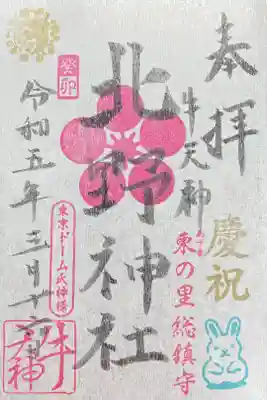 奉拝
慶祝
牛天神
東の里総鎮守
北野神社
癸卯
令和五年三月十六日
東京ドーム氏神様
牛天神